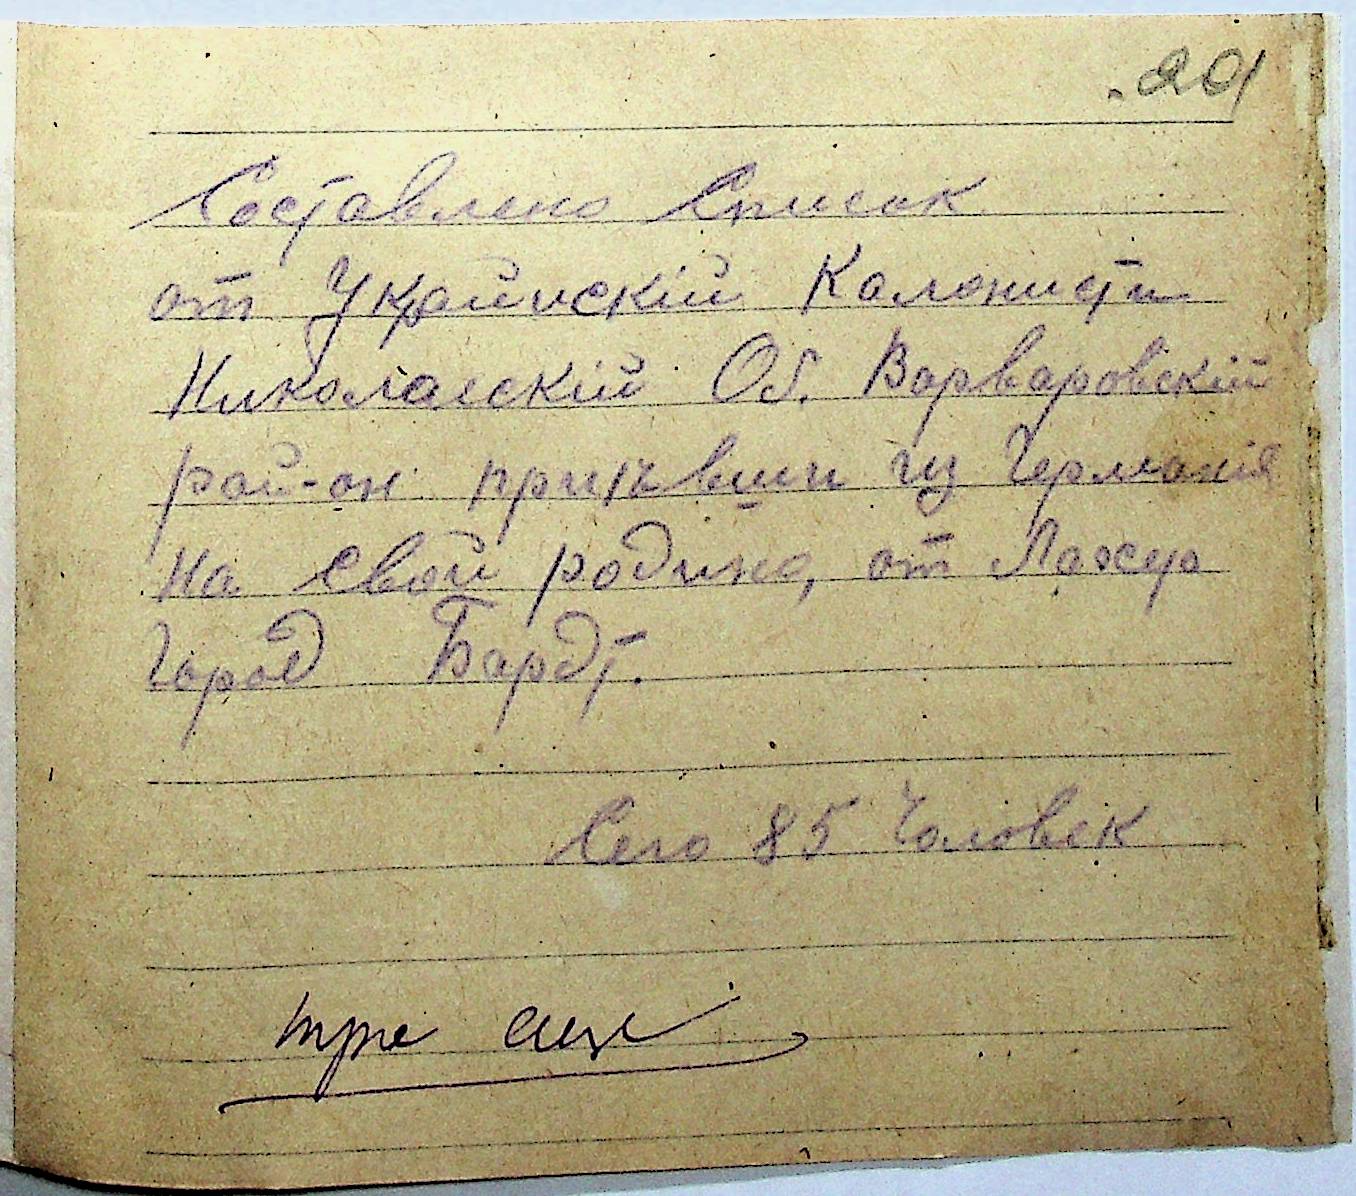 Составлено Список
от Украйнскій Колонисти
Николаескій Об. Варваровскій
рай-он прибивши из Германія
на свой родино, от Лагер
Город Бардт.
Сего 85 Чоловек